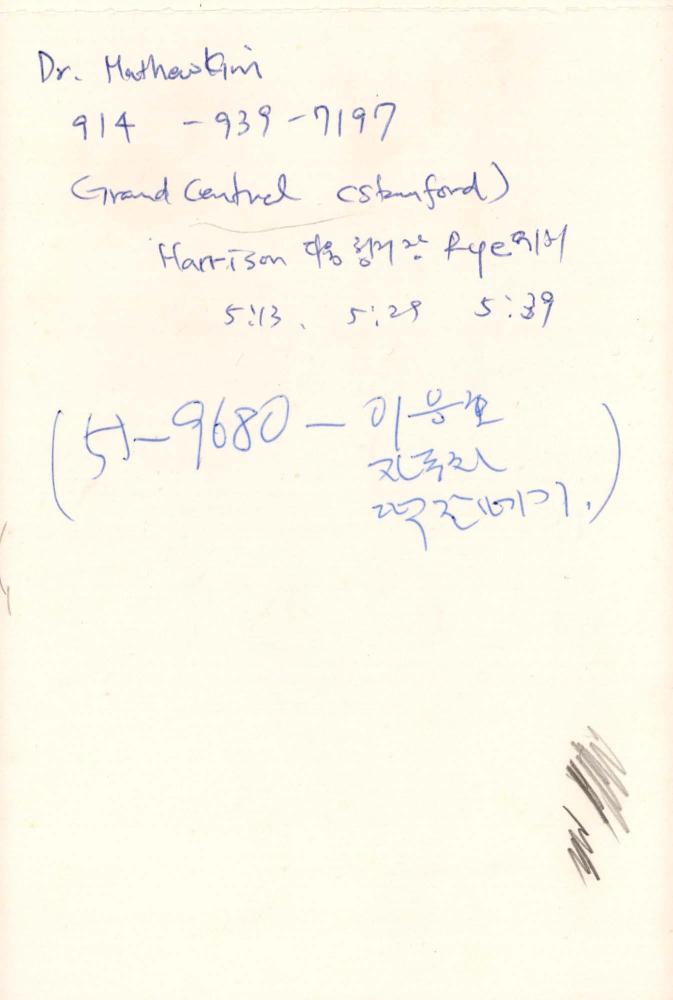 Dr. Mathew Kim
914 - 939 - 7197
Grand Central (Stamford)
Harrison 다음 정거장 Rye에서
5:13, 5:29 5:39
(51-9680 -